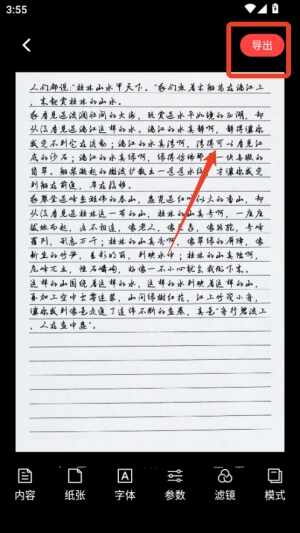 3:55
导出
人们都说:"桂林山水甲天下。"我们乘着木船荡在漓江上
,来观赏桂林的山水。
我看见过波澜壮阔的大海,玩赏过水平如镜的西湖,却
从没看见过漓江这样的水。漓江的水真静啊,静得让你
感觉不到它在流动;漓江的水真清啊,清得可以看见江
底的沙石;漓江的水真绿啊,绿得仿佛那一块无瑕的
翡翠。船桨激起的微波扩散出一道道水纹,才让你感觉
到船在前进,岸在后移。
我攀登过峰峦雄伟的泰山,游览过红叶似火的香山,却
从没看见过桂林这一带的山。桂林的山真奇啊,一座座
拔地而起,各不相连,像老人,像巨象,像骆驼,奇峰
罗列,形态万千;桂林的山真秀啊,像翠绿的屏障,像
新生的竹笋,色彩明丽,倒映水中;桂林的山真险啊,
危峰兀立,怪石嶙峋,好像一不小心就会栽倒下来。
这样的山围绕着这样的水,这样的水倒映着这样的山,
再加上空中云雾迷蒙,山间绿树红花,江上竹筏小舟,
让你感到像是走进了连绵不断的画卷,真是"舟行碧波上
,人在画中游"。
内容
纸张
字体
参数
滤镜
模式